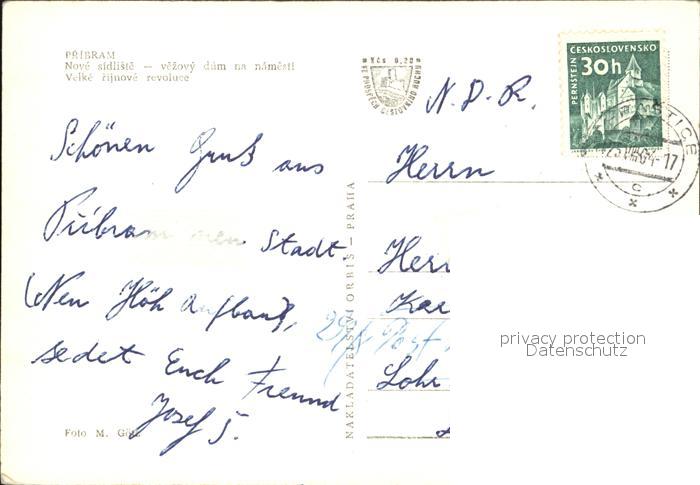 PŘÍBRAM
Nové sídliště — věžový dům na náměstí
Velké říjnové revoluce
Kčs 0,20
VE PROSPĚCH CESTOVNÍHO RUCHU
ČESKOSLOVENSKO
30h
PERNŠTEJN
TICE
-17
C
N.D.R.
Schönen Gruß aus
Příbram Stadt.
(Neu Aufbau),
sedet Euch Freund
Josef Š.
Herrn
Herr
Kar
Lohr
NAKLADATELSTVÍ ORBIS — PRAHA
Foto M.
privacy protection
Datenschutz